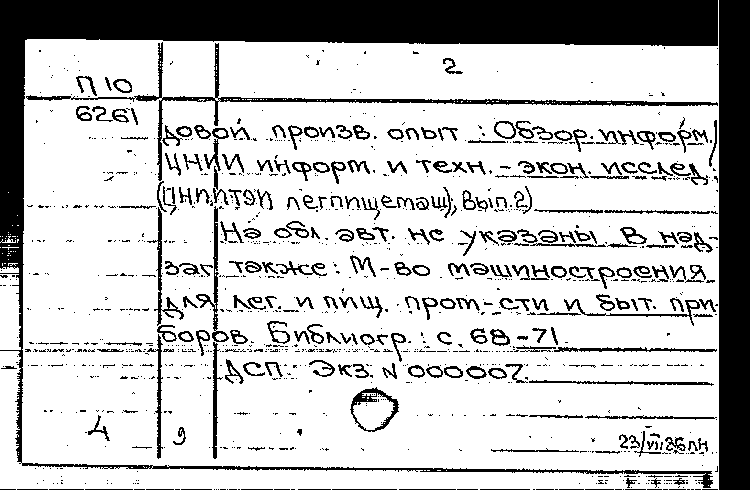 2
П 10
6261
довой произв. опыт : Обзор. информ./
ЦНИИ информ. и техн.-экон. исслед.
(ЦНИИТЭИ легпищемаш); Вып.2)
На обл. авт. не указаны. В над-
заг. также: М-во машиностроения
для лег. и пищ. пром-сти и быт. при-
боров. Библиогр.: с. 68-71.
ДСП. Экз. N 000007.
4 9
23/VI 86 ЛН